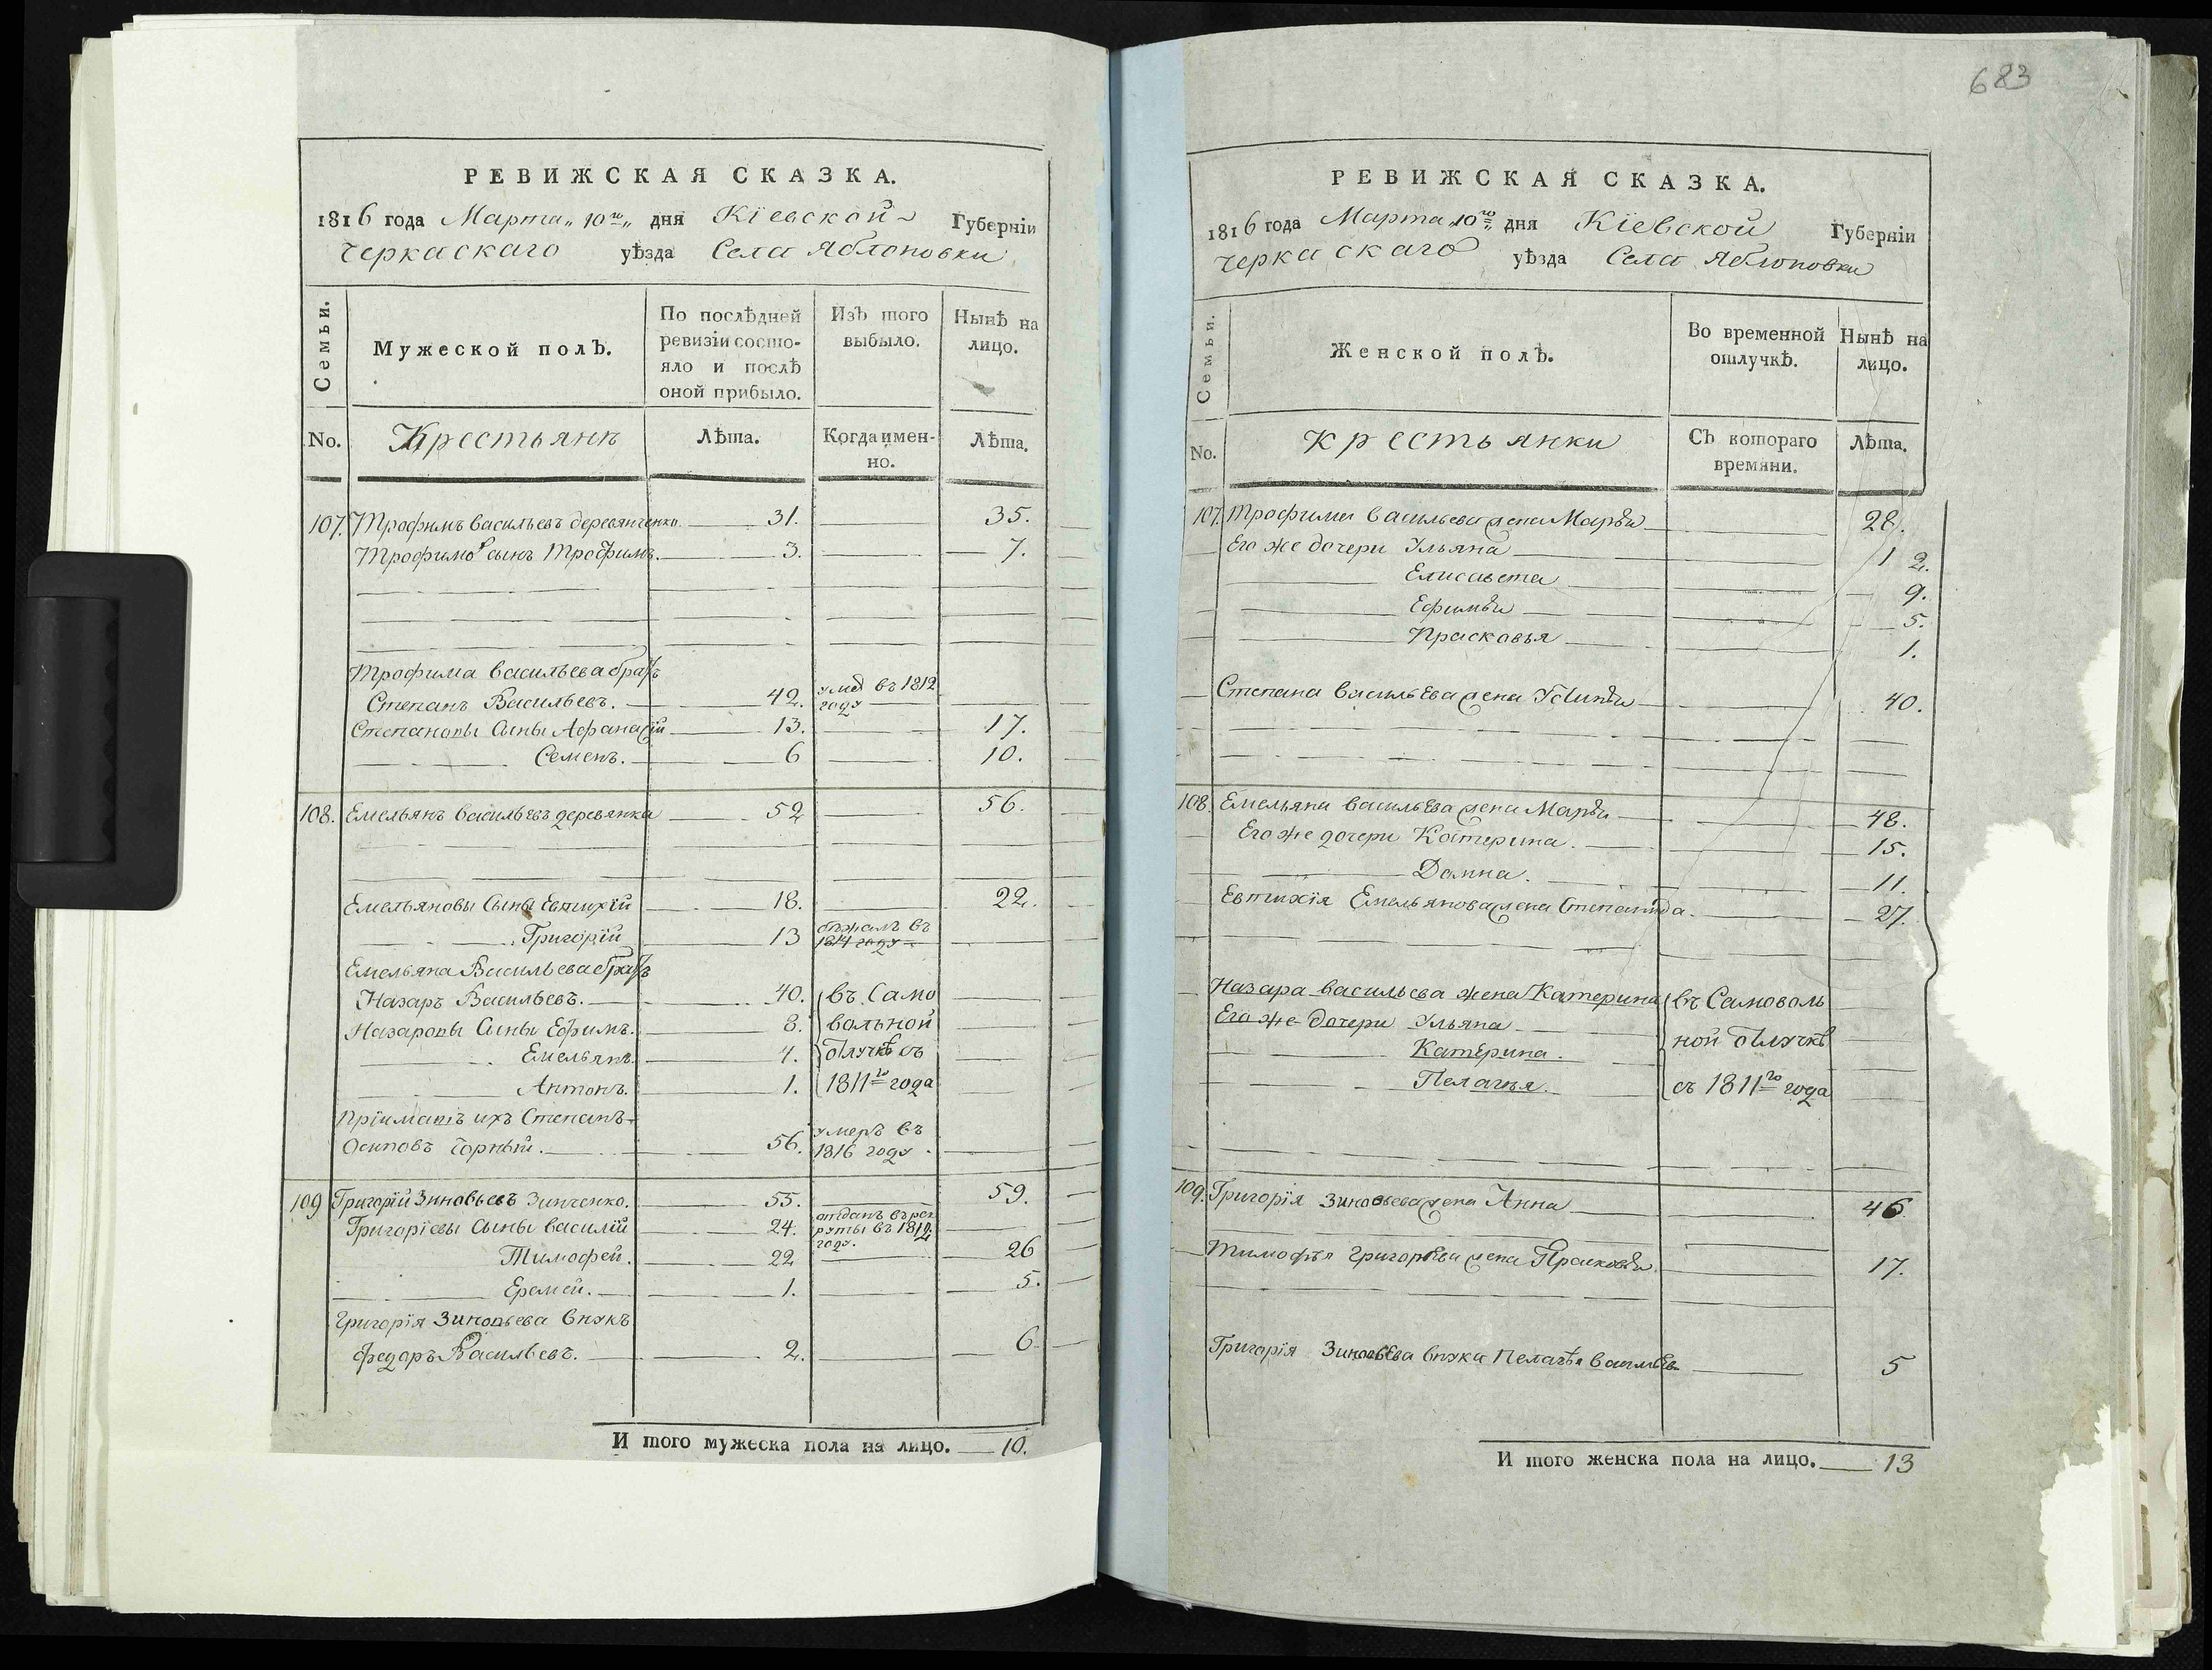 РЕВИЖСКАЯ СКАЗКА.
1816 года Марта „10го„ дня Кіевской Губерніи
Черкаскаго уѣзда Села Яблоновки
Семьи.
Мужеской полъ.
По послѣдней ревизіи состояло и послѣ оной прибыло.
Изъ того выбыло.
Нынѣ на лицо.
No. Крестьянъ Лѣта. Когда именно. Лѣта.
107. Трофимъ Васильевъ Деревянченко 31. 35.
Трофимовъ сынъ Трофимъ. 3. 7.
Трофима Васильева братъ
Степанъ Васильевъ. 42. умеръ въ 1812 году
Степановы Сыны Афанасій 13. 17.
Семенъ. 6 10.
108. Емельянъ Васильевъ Деревянка 52 56.
Емельяновы Сыны Евтихій 18. 22.
Григорій 13 бѣжалъ въ 1814 году
Емельяна Васильева братъ
Назаръ Васильевъ. 40. въ Само
Назаровы Сыны Ефимъ. 8. вольной
Емельянъ. 4. отлучкѣ съ
Антонъ. 1. 1811го года
Пріиматъ ихъ Степанъ
Осиповъ Чорный. 56. умеръ въ 1816 году.
109 Григорій Зиновьевъ Зинченко. 55. 59.
Григоріевы Сыны Василій 24. отданъ въ рекруты въ 1812 году.
Тимофей. 22 26
Еремей. 1. 5.
Григорія Зиновьева внукъ
Федоръ Васильевъ. 2. 6.
И того мужеска пола на лицо. 10.
683
РЕВИЖСКАЯ СКАЗКА.
1816 года Марта „10го„ дня Кіевской Губерніи
Черкаскаго уѣзда Села Яблоновки
Семьи.
Женской полъ.
Во временной отлучкѣ.
Нынѣ на лицо.
No. Крестьянки Съ котораго времяни. Лѣта.
107. Трофима Васильева жена Марья 28.
Его же дочери Ульяна 12.
Елисавета 9.
Ефимья 5.
Прасковья 1.
Степана Васильева жена Устинья 40.
108. Емельяна Васильева жена Марья 48.
Его же дочери Катерина. 15.
Домна. 11.
Евтихія Емельянова жена Степанида. 27.
Назара Васильева жена Катерина въ Самоволь
Его же дочери Ульяна ной отлучкѣ
Катерина.
Пелагья. съ 1811го года
109. Григорія Зиновьева жена Анна 46
Тимофѣя Григорьева жена Прасковья. 17.
Григорія Зиновьева внука Пелагѣя Васильев 5
И того женска пола на лицо. 13